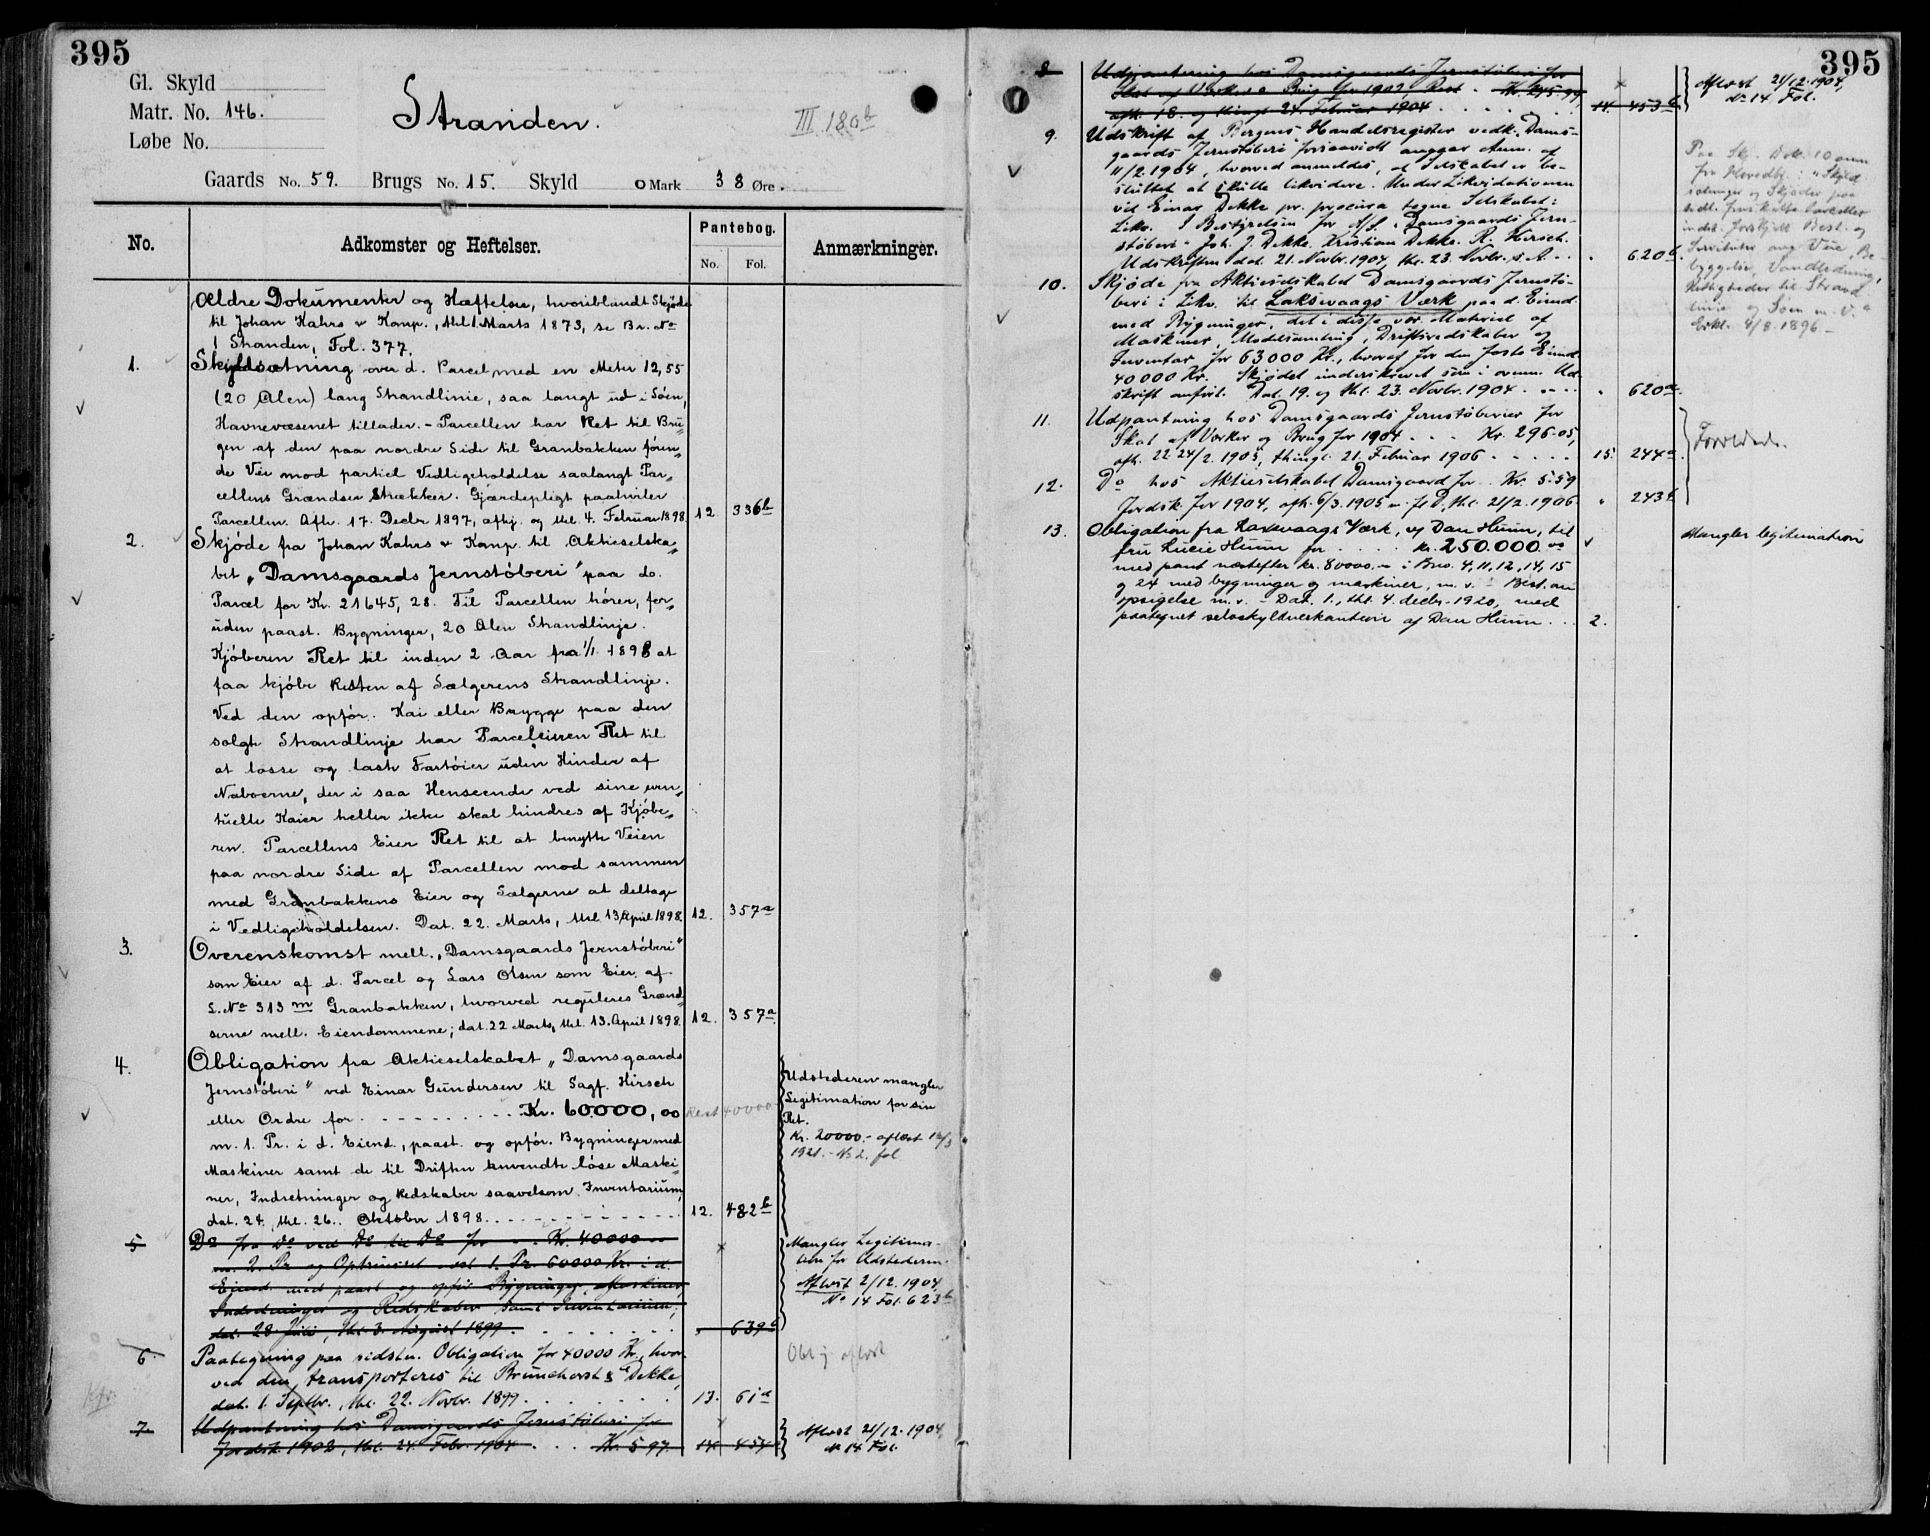 395
Gl. Skyld
Matr. No. 146.
Løbe No.
Stranden.
III 180b
Gaards No. 59. Brugs No. 15. Skyld 0 Mark 38 Øre.
No.
Adkomster og Heftelser.
Pantebog.
No. Fol.
Anmærkninger.
Ældre Dokumenter og Hæftelser, hvoriblandt Skjøde
til Johan Kahrs & Komp., thl. 1. Marts 1873, se Br. No
1 Stranden, Fol. 377.
1. Skyldsætning over d. Parcel med en Meter 12,55
(20 Alen) lang Strandlinie, saa langt ud i Søen,
Havnevæsenet tillader. - Parcellen har Ret til Bru-
gen af den paa nordre Side til Granbakken føren-
de Vei mod partiel Vedligeholdelse saalangt Par-
cellens Grændser strækker. Gjærdepligt paahviler
Parcellen. Afh. 17. Decbr 1897, afhj. og thl. 4. Februar 1898 12. 336b
2. Skjøde fra Johan Kahrs & Komp. til Aktieselska-
bet "Damsgaards Jernstøberi" paa do.
Parcel for Kr. 21645,28. Til Parcellen hører, for-
uden paast. Bygninger, 20 Alen Strandlinje.
Kjøberen Ret til inden 2 Aar fra 1/1 1898 at
faa kjøbe Resten af Sælgerens Strandlinje.
Ved den opfør. Kai eller Brygge paa den
solgte Strandlinje har Parceleieren Ret til
at losse og laste Fartøier uden Hinder af
Naboerne, der i saa Henseende ved sine even-
tuelle Kaier heller ikke skal hindres af Kjøbe-
ren. Parcellens Eier Ret til at benytte Veien
paa nordre Side af Parcellen mod sammen
med Granbakkens Eier og Sælgerne at deltage
i Vedligeholdelsen. Dat. 22. Marts, thl. 13 April 1898. 12. 357a
3. Overenskomst mell. "Damsgaards Jernstøberi"
som Eier af d. Parcel og Lars Olsen som Eier af
L. No 313m Granbakken, hvorved reguleres Grænd-
serne mell. Eiendommene; dat. 22 Marts, thl. 13. April 1898. 12. 357a
4. Obligation fra Aktieselskabet "Damsgaards
Jernstøberi" ved Einar Gundersen til Sagf. Hirsch
eller Ordre for - - - - Kr. 60000,00 Rest 40000
m. 1. Pr. i d. Eiend., paast. og opfør. Bygninger med
Maskiner samt de til Driften anvendte løse Maski-
ner, Indretninger og Redskaber saavelsom Inventarium,
dat. 24. thl. 26. Oktober 1898. 12. 482b
Udstederen mangler
Legitimation for sin
Ret.
Kr. 20000.- aflæst 14/3
1921. - No 2. fol
5 Do fra Do ved Do til Do for - - Kr. 40000
m. 2. Pr. og Oprinet. ved 1. Pr. 60000 Kr. i d.
Eiend. med paast og opfør Bygninger, Maskiner,
Indretninger og Redskaber samt Inventarium,
dat. 28. Juli, thl. 3. August 1899. 639b
Mangler Legitima-
tion for Udstederen.
Aflæst 2/12. 1904,
No 14 Fol. 623b
6. Paategning paa sidstn. Obligation for 40000 Kr., hvor-
ved den transporteres til Brunchorst & Dekke,
dat. 1. Septbr., thl. 22. Novbr. 1899. 13. 61a
Obl. aflæst
7. Udpantning hos Damsgaards Jernstøberi for
Jordsk. 1902, thl. 24. Febr. 1904. . . Kr. 5 97. 14 454
Aflæst 21/12. 1904,
No 14. Fol.
395
8 Udpantning hos Damsgaards Jernstøberi for
Skat af Verker & Brug for 1902, Rest. Kr. 245.94,
afh. 18. og thingl. 24. Februar 1904 14. 453b
Aflæst 21/12. 1904,
No 14. Fol.
9. Udskrift af Bergens Handelsregister vedk. Dams-
gaards Jernstøberi forsaavidt angaar Anm. af
11/2. 1904, hvorved anmeldes, at Selskabet er be-
sluttet at skulle likvidere. Under Likvidationen
vil Einar Dekke pr. procura tegne Selskabet:
Likv. I Bestyrelsen for A/S. "Damsgaards Jern-
støberi" Joh. J. Dekke. Kristian Dekke. R. Hirsch.
Udskriften dat. 21. Novbr. 1904, thl. 23. Novbr. s. A. " 620b
10. Skjøde fra Aktieselskabet Damsgaards Jernstø-
beri i Likv. til Laksevaags Værk paa d. Eiend
med Bygninger, det i disse vær. Materiel af
Maskiner, Modelsamling, Driftsredskaber og
Inventar for 63000 Kr., hvoraf for den faste Eiend.
40000 Kr. Skjødet underskrevet som i ovenn. Ud-
skrift anført. Dat. 19. og thl. 23. Novbr. 1904 " 620a
Paa Skj. Dok. 10 anm.
fra Hovedbl.: "Skyld
sætninger og Skjøder paa
11. Udpantning hos Damsgaards Jernstøberier for
Skat af Verker og Brug for 1904 - - - Kr. 296.05,
afh. 22-24/2. 1905, thingl. 21. Februar 1906 15. 244a
12. Do hos Aktieselskabet Damsgaard for Kr. 5.59
Jordsk. for 1904, afh. 6/3. 1905 m. fl. D. thl. 21/2. 1906 " 243b
Forældede.
13. Obligation fra Laxevaags Værk, v/ Dan Huun, til
fru Lucie Huun for . . . . kr. 250.000.00
med pant næstefter kr. 80000.- i Bno. 4, 11, 12, 14, 15
og 24 med bygninger og maskiner, m. v. - Best. om
opsigelse m. v. - Dat. 1., thl. 4. decbr. 1920, med
paategnet selvskyldnerkaution af Dan Huun . . . 2.
Mangler legitimation